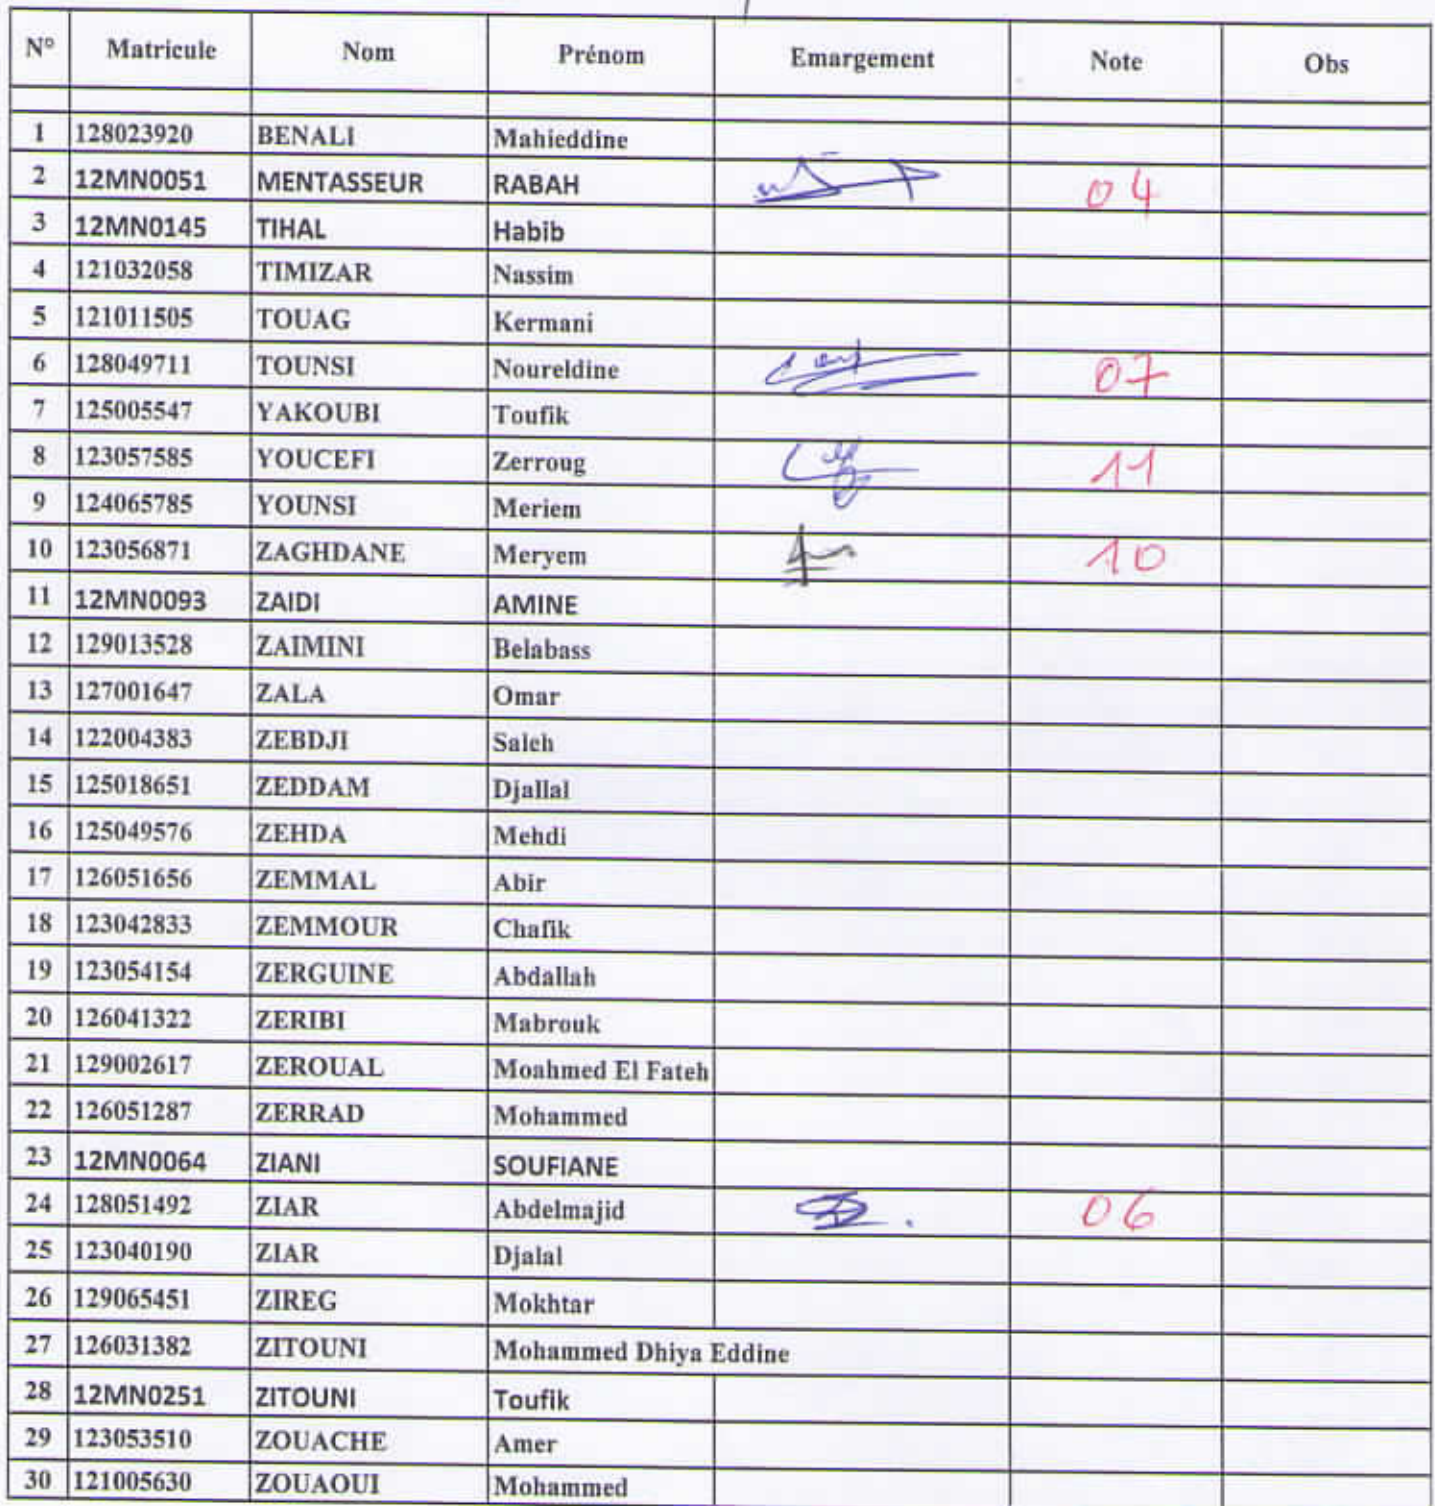 N° Matricule Nom Prénom Emargement Note Obs
1 128023920 BENALI Mahieddine
2 12MN0051 MENTASSEUR RABAH 04
3 12MN0145 TIHAL Habib
4 121032058 TIMIZAR Nassim
5 121011505 TOUAG Kermani
6 128049711 TOUNSI Noureldine 07
7 125005547 YAKOUBI Toufik
8 123057585 YOUCEFI Zerroug 11
9 124065785 YOUNSI Meriem
10 123056871 ZAGHDANE Meryem 10
11 12MN0093 ZAIDI AMINE
12 129013528 ZAIMINI Belabass
13 127001647 ZALA Omar
14 122004383 ZEBDJI Saleh
15 125018651 ZEDDAM Djallal
16 125049576 ZEHDA Mehdi
17 126051656 ZEMMAL Abir
18 123042833 ZEMMOUR Chafik
19 123054154 ZERGUINE Abdallah
20 126041322 ZERIBI Mabrouk
21 129002617 ZEROUAL Moahmed El Fateh
22 126051287 ZERRAD Mohammed
23 12MN0064 ZIANI SOUFIANE
24 128051492 ZIAR Abdelmajid 06
25 123040190 ZIAR Djalal
26 129065451 ZIREG Mokhtar
27 126031382 ZITOUNI Mohammed Dhiya Eddine
28 12MN0251 ZITOUNI Toufik
29 123053510 ZOUACHE Amer
30 121005630 ZOUAOUI Mohammed